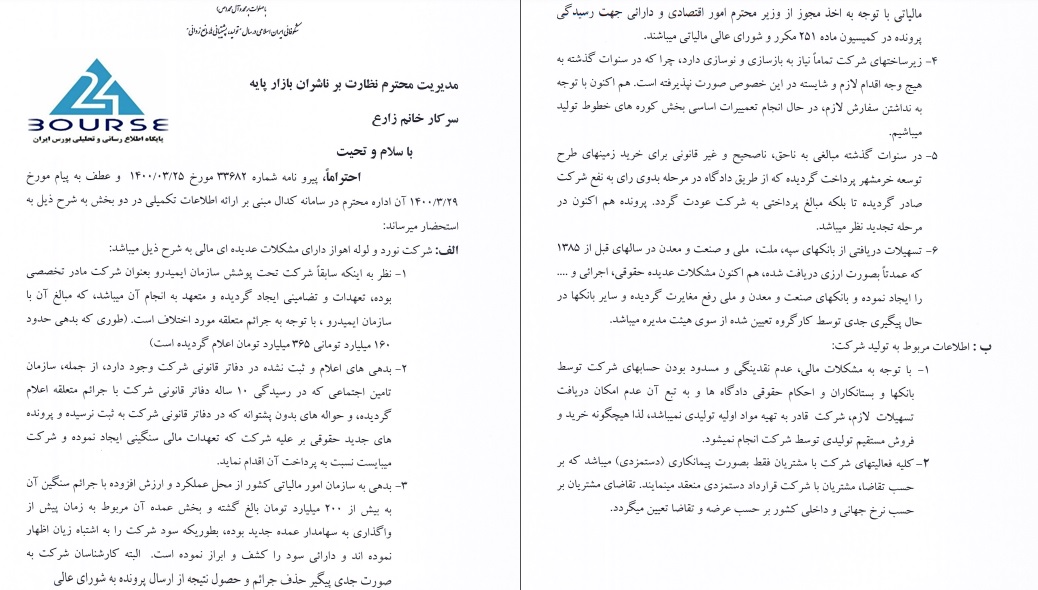 با صلوات بر محمد و آل محمد (ص)
شکوفائی ایران اسلامی در سال "تولید، پشتیبانی ها، مانع زدائی"
BOURSE
پایگاه اطلاع رسانی و تحلیلی بورس ایران
مدیریت محترم نظارت بر ناشران بازار پایه
سرکار خانم زارع
با سلام و تحیت
احتراماً، پیرو نامه شماره ۳۳۶۸۲ مورخ ۱۴۰۰/۰۳/۲۵ و عطف به پیام مورخ
۱۴۰۰/۳/۲۹ آن اداره محترم در سامانه کدال مبنی بر ارائه اطلاعات تکمیلی در دو بخش به شرح ذیل به
استحضار میرساند:
الف: شرکت نورد و لوله اهواز دارای مشکلات عدیده ای مالی به شرح ذیل میباشد:
۱- نظر به اینکه سابقاً شرکت تحت پوشش سازمان ایمیدرو بعنوان شرکت مادر تخصصی
بوده، تعهدات و تضامینی ایجاد گردیده و متعهد به انجام آن میباشد، که مبالغ آن با
سازمان ایمیدرو ، با توجه به جرائم متعلقه مورد اختلاف است. (طوری که بدهی حدود
۱۶۰ میلیارد تومانی ۳۶۵ میلیارد تومان اعلام گردیده است)
۲- بدهی های اعلام و ثبت نشده در دفاتر قانونی شرکت وجود دارد، از جمله، سازمان
تامین اجتماعی که در رسیدگی ۱۰ ساله دفاتر قانونی شرکت با جرائم متعلقه اعلام
گردیده، و حواله های بدون پشتوانه که در دفاتر قانونی شرکت به ثبت نرسیده و پرونده
های جدید حقوقی بر علیه شرکت که تعهدات مالی سنگینی ایجاد نموده و شرکت
میبایست نسبت به پرداخت آن اقدام نماید.
۳- بدهی به سازمان امور مالیاتی کشور از محل عملکرد و ارزش افزوده با جرائم سنگین آن
به بیش از ۲۰۰ میلیارد تومان بالغ گشته و بخش عمده آن مربوط به زمان پیش از
واگذاری به سهامدار عمده جدید بوده، بطوریکه سود شرکت را به اشتباه زیان اظهار
نموده اند و دارائی سود را کشف و ابراز نموده است. البته کارشناسان شرکت به
صورت جدی پیگیر حذف جرائم و حصول نتیجه از ارسال پرونده به شورای عالی
مالیاتی با توجه به اخذ مجوز از وزیر محترم امور اقتصادی و دارائی جهت رسیدگی
پرونده در کمیسیون ماده ۲۵۱ مکرر و شورای عالی مالیاتی میباشند.
۴- زیرساختهای شرکت تماماً نیاز به بازسازی و نوسازی دارد، چرا که در سنوات گذشته به
هیچ وجه اقدام لازم و شایسته در این خصوص صورت نپذیرفته است. هم اکنون با توجه
به نداشتن سفارش لازم، در حال انجام تعمییرات اساسی بخش کوره های خطوط تولید
میباشیم.
۵- در سنوات گذشته مبالغی به ناحق، ناصحیح و غیر قانونی برای خرید زمینهای طرح
توسعه خرمشهر پرداخت گردیده که از طریق دادگاه در مرحله بدوی رای به نفع شرکت
صادر گردیده تا بلکه مبالغ پرداختی به شرکت عودت گردد. پرونده هم اکنون در
مرحله تجدید نظر میباشد.
۶- تسهیلات دریافتی از بانکهای سپه، ملت، ملی و صنعت و معدن در سالهای قبل از ۱۳۸۵
که عمدتاً بصورت ارزی دریافت شده، هم اکنون مشکلات عدیده حقوقی، اجرائی و ....
را ایجاد نموده و بانکهای صنعت و معدن و ملی رفع مغایرت گردیده و سایر بانکها در
حال پیگیری جدی توسط کارگروه تعیین شده از سوی هیئت مدیره میباشد.
ب : اطلاعات مربوط به تولید شرکت:
۱- با توجه به مشکلات مالی، عدم نقدینگی و مسدود بودن حسابهای شرکت توسط
بانکها و بستانکاران و احکام حقوقی دادگاه ها و به تبع آن عدم امکان دریافت
تسهیلات لازم، شرکت قادر به تهیه مواد اولیه تولیدی نمیباشد، لذا هیچگونه خرید و
فروش مستقیم تولیدی توسط شرکت انجام نمیشود.
۲- کلیه فعالیتهای شرکت با مشتریان فقط بصورت پیمانکاری (دستمزدی) میباشد که بر
حسب تقاضا، مشتریان با شرکت قرارداد دستمزدی منعقد مینمایند. تقاضای مشتریان بر
حسب نرخ جهانی و داخلی کشور بر حسب عرضه و تقاضا تعیین میگردد.